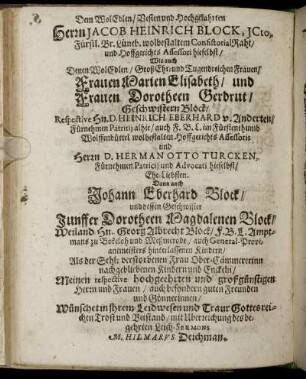 Dem WolEdlen/ Vesten und Hochgelahrten
Herrn JACOB HEINRICH BLOCK, JCto,
Fürstl. Br. Lüneb. wolbestaltem Consistorial Raht/
und Hoffgerichts Assessori hieselbst/
Wie auch
Denen WolEdlen/ Groß Ehr-und Tugendreichen Frauen/
Frauen Marien Elisabeth/ und
Frauen Dorotheen Gerdrut/
Geschwistern Block/
Respectivè Hn. D. HEINRICH EBERHARD v. Anderten/
Fürnehmen Patricij alhie/ auch F. B. L. im Fürstenthumb
Wolffenbüttel wolbestalten Hoffgerichts Assessoris
und
Herrn D. HERMAN OTTO TURCKEN,
Fürnehmen Patricij und Advocati hieselbst/
Ehe-Liebsten.
Dann auch
Johann Eberhard Block/
und dessen Geschwister
Junffer Dorotheen Magdalenen Block/
Weiland Hn. Georg Albrecht Block/ F. B. L. Ampt-
manns zu Bokeloh und Meßmerode/ auch General-Provi-
antmeisters hinterlassenen Kindern/
Als der Sehl: verstorbenen Frau Ober-Cämmererinn
nachgebliebenen Kindern und Enckeln/
Meinen respectivè hochgeehrten und großgünstigen
Herrn und Frauen/ auch besondern guten Freunden
und Gönnerinnen/
Wünschet in Ihrem Leidwesen und Traur Gottes rei-
chen Trost und Beystand/ mit Uberreichung des be-
gehrten Leich-SERMONS
M. HILMARUS Deichman.